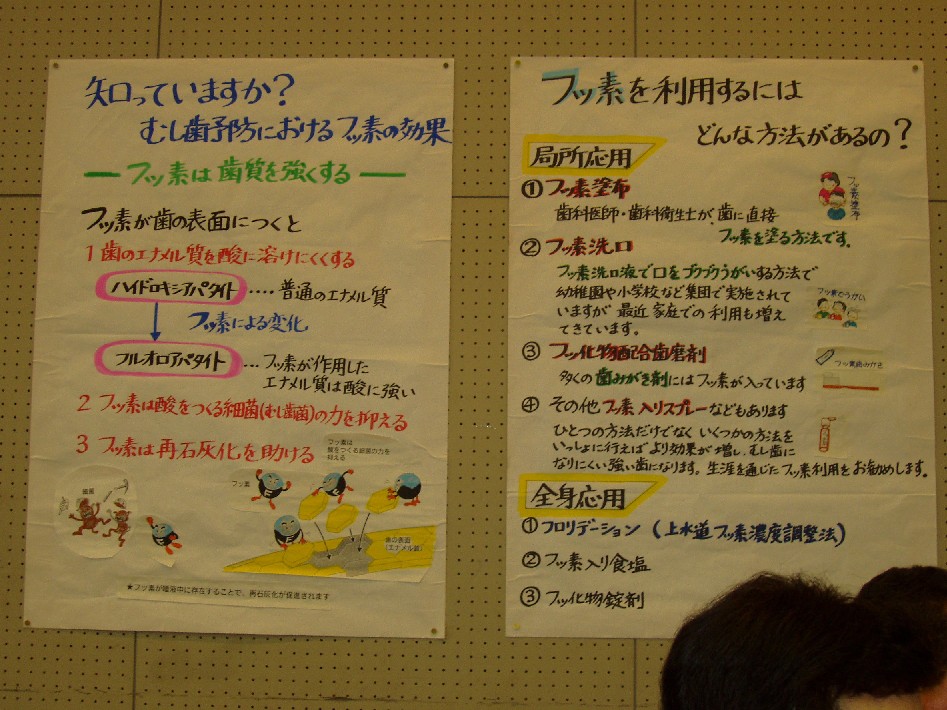 知っていますか?
むし歯予防における フッ素の効果
フッ素は歯質を強くする
フッ素が歯の表面につくと
1 歯のエナメル質を酸に溶けにくくする
ハイドロキシアパタイト ‥‥ 普通のエナメル質
フッ素による変化
フルオロアパタイト ‥‥ フッ素が作用した
エナメル質は酸に強い
2 フッ素は酸をつくる細菌(むし歯菌)の力を抑える
3 フッ素は再石灰化を助ける
フッ素は
酸をつくる細菌の力を
抑える
フッ素
歯の表面
(エナメル質)
★フッ素が唾液中に存在することで、再石灰化が促進されます
フッ素を利用するには
どんな方法があるの?
局所応用
① フッ素塗布
歯科医師・歯科衛生士が、歯に直接
フッ素を塗る方法です。
フッ素塗布
② フッ素洗口
フッ素洗口液で口をブクブクうがいする方法で
幼稚園や小学校など集団で実施されて
いますが 最近 家庭での利用も増え
てきています。
フッ素でうがい
③ フッ化物配合歯磨剤
多くの歯みがき剤にはフッ素が入っています
フッ素歯みがき
④ その他 フッ素入りスプレーなどもあります
ひとつの方法だけでなく いくつかの方法を
いっしょに行えば より効果が増し、むし歯に
なりにくい強い歯になります。生涯を通じたフッ素利用をお勧めします。
全身応用
① フロリデーション (上水道フッ素濃度調整法)
② フッ素入り食塩
③ フッ化物錠剤